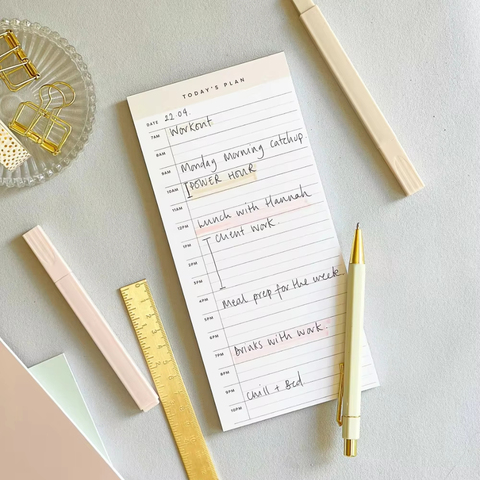 TODAY'S PLAN
DATE 22.09.
7AM Workout
8AM
9AM Monday Morning catchup
10AM POWER HOUR
11AM
12PM Lunch with Hannah
1PM Client work.
2PM
3PM
4PM Meal prep for the week
5PM
6PM
7PM Drinks with work.
8PM
9PM Chill + Bed
10PM